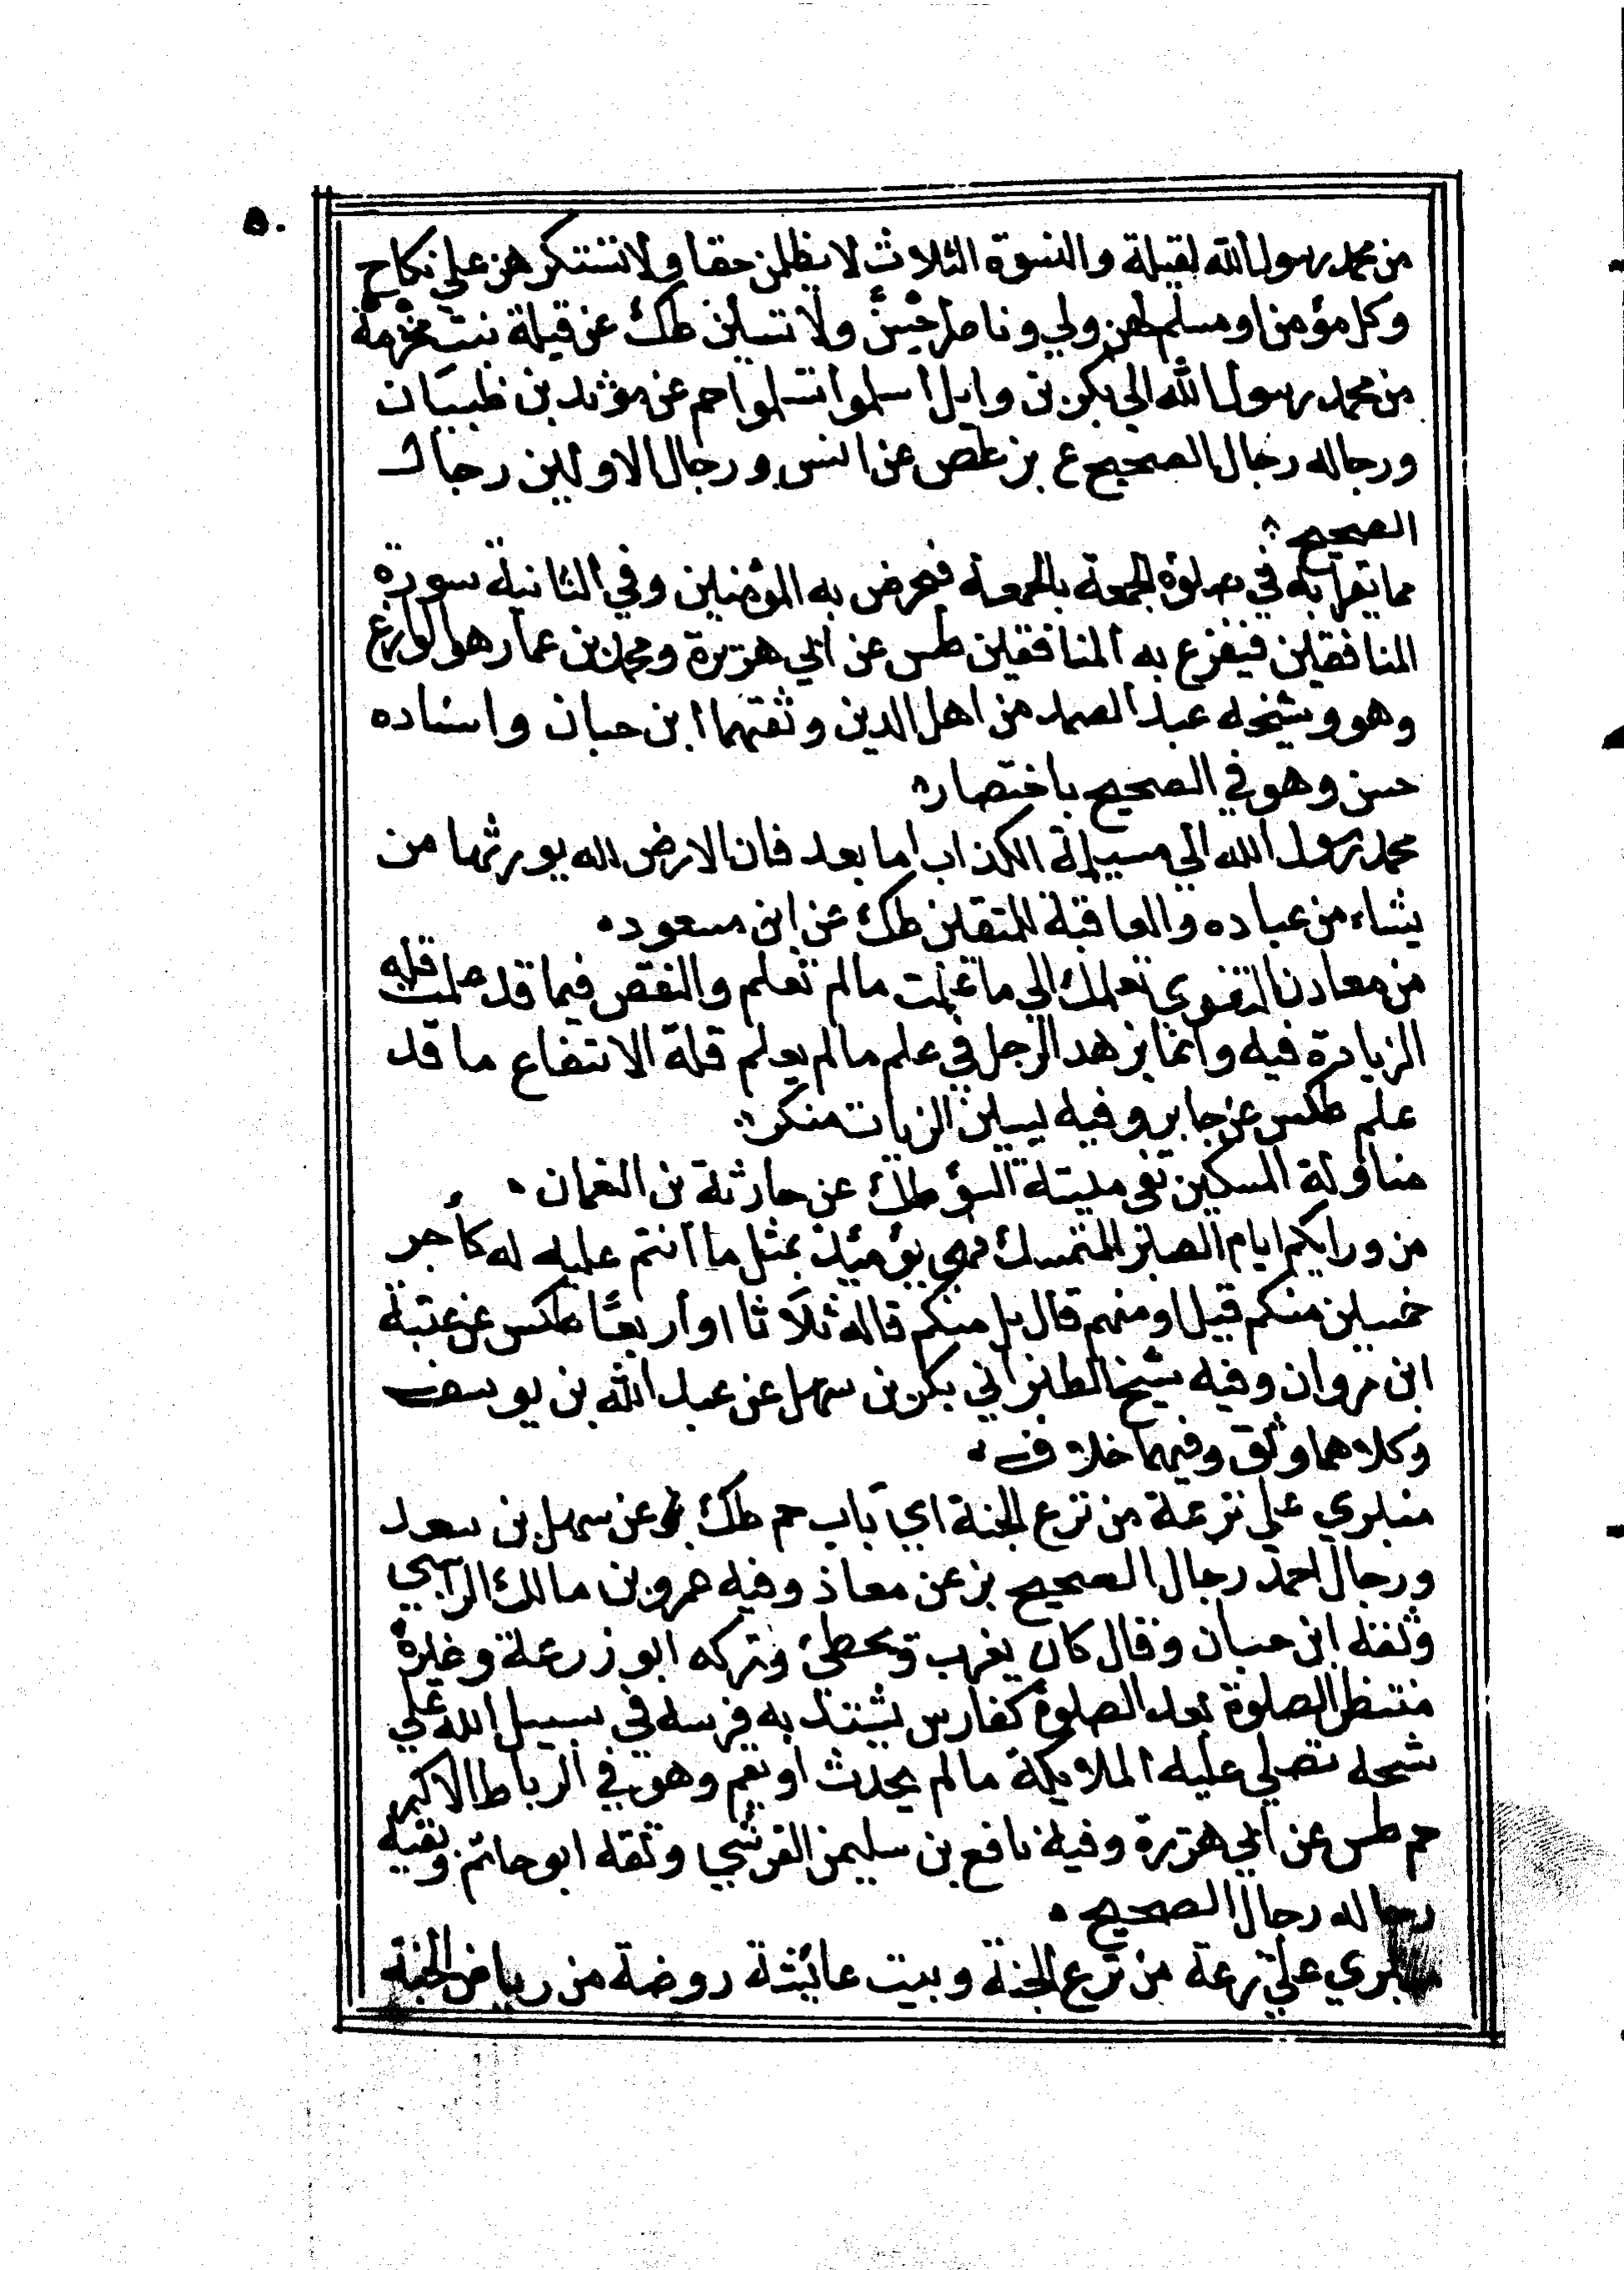 ٥٠
من محمد رسول الله لقيلة والنسوة الثلاث لا يظلمن حقا ولا تستكرهن علي نكاح
وكل مؤمن او مسلم لهن ولي وناصر احسن ولا تسئلن طك عن قيلة بنت مخرمة
من محمد رسول الله الي بكر بن وايل اسلموا تسلموا حم عن مرثد بن ظبيان
ورجاله رجال الصحيح ع بز طص عن انس ورجال الاولين رجال
الصحيح
مما يقرأ به في صلوة الجمعة بالجمعة فيحرض به المؤمنين وفي الثانية سورة
المنافقين فيفزع به المنافقين طس عن ابي هريرة ومحمد بن عمار هو الوازع
وهو وشيخه عبد الصمد من اهل الدين وثقهما ابن حبان واسناده
حسن وهو في الصحيح باختصار
محمد رسول الله الي مسيلمة الكذاب اما بعد فان الارض لله يورثها من
يشاء من عباده والعاقبة للمتقين طك عن ابن مسعود
من معادن التقوي تعلمك الي ما علمت ما لم تعلم والنقص فيما قد علمت قلة
الزيادة فيه وانما يزهد الرجل في علم ما لم يعلم قلة الانتفاع ما قد
علم طكس عن جابر وفيه يسين الزيات منكر
مناولة المسكين تقي ميتة السؤ طك عن حارثة بن النعمان
من ورايكم ايام الصبر المتمسك فيهن يومئذ بمثل ما انتم عليه له كأجر
خمسين منكم قيل او منهم قال بل منكم قاله ثلاثا او اربعا طكس عن عتبة
ابن مروان وفيه شيخ الطبراني بكر بن سهل عن عبد الله بن يوسف
وكلاهما وثق وفيهما خلاف
منبري علي ترعة من ترع الجنة اي باب حم طك عن سهل بن سعد
ورجال احمد رجال الصحيح بز عن معاذ وفيه عمرو بن مالك الراسبي
وثقه ابن حبان وقال كان يغرب ويخطئ وتركه ابو زرعة وغيره
منتظر الصلوة بعد الصلوة كفارس يشتد به فرسه في سبيل الله علي
شحه تصلي عليه الملايكة ما لم يحدث او يقم وهو في الرباط الاكبر
حم طس عن ابي هريرة وفيه نافع بن سليمن القرشي وثقه ابو حاتم وبقية
رجاله رجال الصحيح
منبري علي ترعة من ترع الجنة وبيت عائشة روضة من رياض الجنة